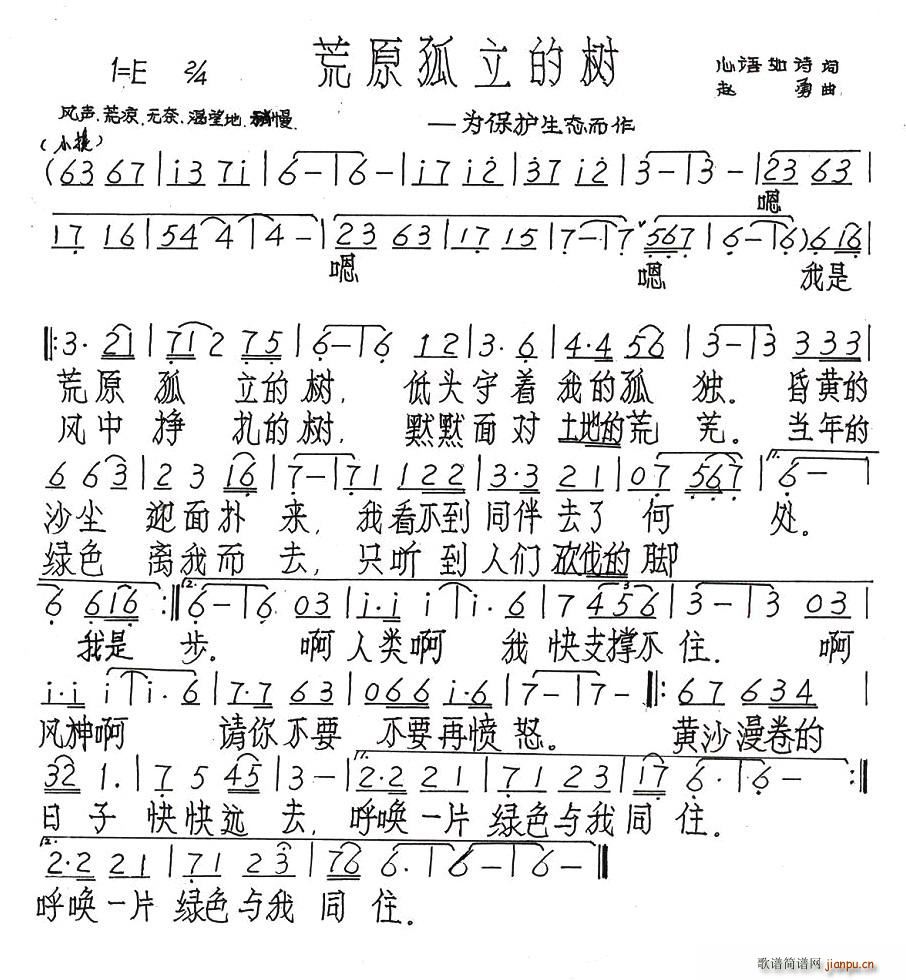 荒原孤立的树
1=E 2/4
心语如诗 词
赵勇 曲
风声、荒凉、无奈、渴望地 慢
——为保护生态而作
(63 67 | i3 7i | 6 – | 6 – | i7 i2 | 37 i2 | 3 – | 3 – | 23 63 |
嗯
17 16 | 54 4 | 4 – | 23 63 | 17 15 | 7 – | 7 567 | 6 – | 6) 6 16 |
嗯 嗯 我是
‖: 3· 21 | 71 2 75 | 6 – | 6 12 | 3· 6 | 4·4 56 | 3 – | 3 333 |
荒原 孤 立的树, 低头守着我的孤 独。昏黄的
风中 挣 扎的树, 默默面对土地的荒 芜。当年的
6 63 | 2 3 16 | 7 – | 71 122 | 3·3 21 | 07 567 | 1. 6 – |
沙尘 迎面扑 来, 我看不到同伴去了 何 处。
绿色 离我而 去, 只听到人们砍伐的脚
6 6 16 :‖ 2. 6 – | 6 03 | i·i i | i· 6 | 7 456 | 3 – | 3 03 |
我是 步。 啊人类啊 我 快支撑不 住. 啊
i·i i | i· 6 | 7·7 63 | 066 i·6 | 7 – | 7 – ‖: 67 634 |
风神啊 请你不要 不要再愤 怒。 黄沙漫卷的
32 1. | 7 5 45 | 3 – | 2·2 21 | 71 23 | 17 6· | 6 – :‖
日 子 快快远 去, 呼唤一片 绿色与我同 住.
2. 2·2 21 | 71 23 | 76 6· | 6 – | 6 – ‖
呼唤一片 绿色与我 同 住.
歌谱简谱网
jianpu.cn